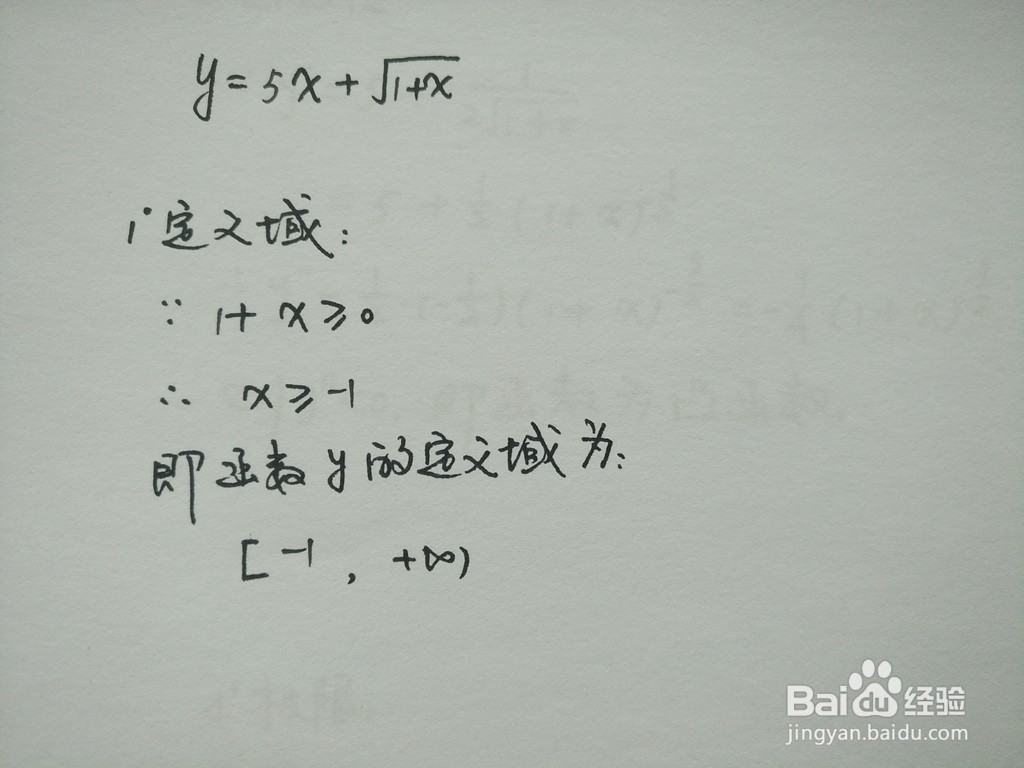 y = 5x + √1+x
1° 定义域:
∵ 1 + x ≥ 0
∴ x ≥ -1
即函数 y 的定义域为:
[ -1 , +∞)
Bai 经验
jingyan.baidu.com